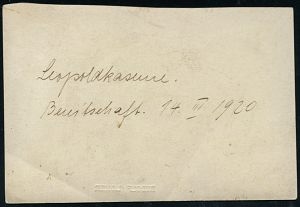 Leopoldkaserne.
Bereitschaft. 14. VI 1920